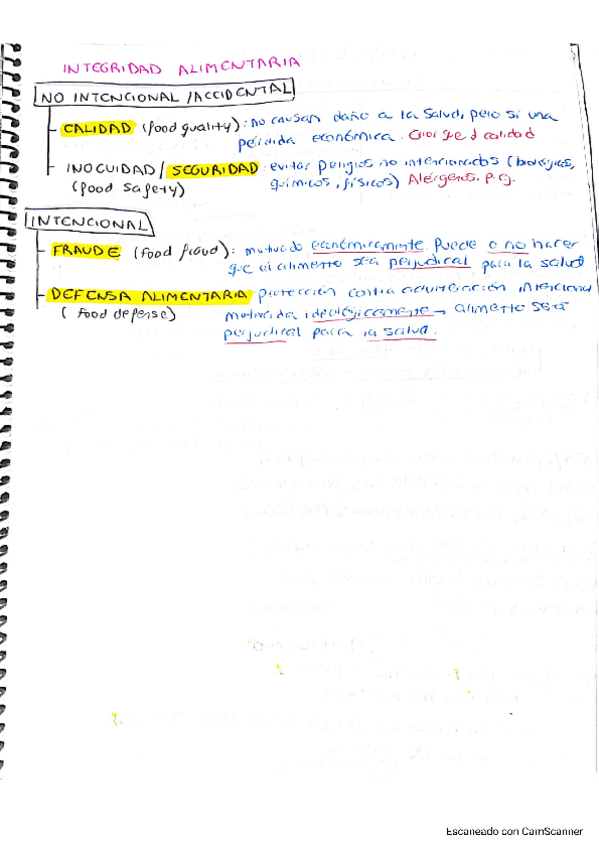 INTEGRIDAD ALIMENTARIA
NO INTENCIONAL / ACCIDENTAL
CALIDAD (food quality): no causan daño a la salud, pero si una
pérdida económica. calidad
INOCUIDAD / SEGURIDAD: evitar peligros no intencionados (biológicos,
(food safety) químicos, físicos) Alérgenos. p.ej.
INTENCIONAL
FRAUDE (food fraud): motivado económicamente. Puede o no hacer
que el alimento sea perjudicial para la salud
DEFENSA ALIMENTARIA protección contra adulteración intencional
(Food defense) motivada ideológicamente → alimento será
perjudicial para la salud.
Escaneado con CamScanner